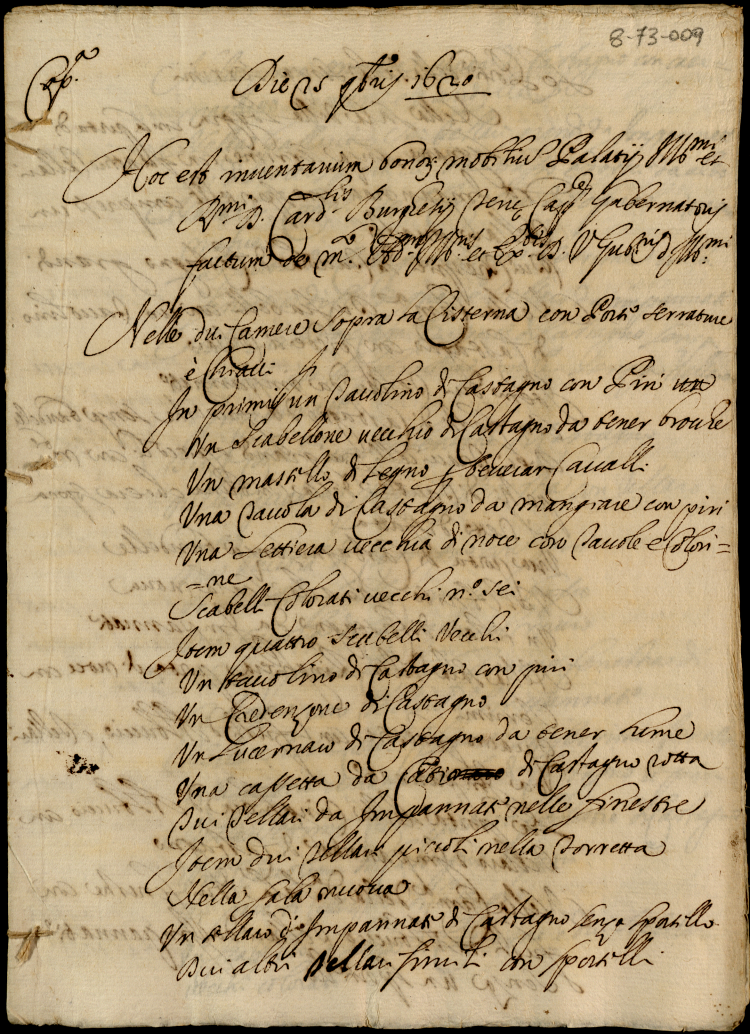 8-73-009
Cop.a
Die 25 9bris 1620
Hoc est inventarium bonor mobiliũ Palatij Ill.mi et
R.mi D. Card.lis Burghesij Gubernatoris
factum de m.to Ill. et D. V Gub.ris d. Ill.mi
Nelle dui Camere sopra la Cisterna con Porte serrature
è Chiavi
In primis un Tavolino di Castagno con Piri
Un Scabellone vecchio di Castagno da tener brocche
Un mastello di Legno p beverar Cavalli
Una Tavola di Castagno da mangiare con piri
Una Lettiera vecchia di noce con Tavole e Colon=
=ne
Scabelli Colorati vecchi n.o sei
Item quattro scabelli vecchi
Un tavolino di Castagno con piri
Un Credenzone di Castagno
Un Lucernaio di Castagno da tener lume
Una cassetta da di Castagno rotta
Dui Tellari da Impannate nelle finestre
Item dui tellari piccoli nella torretta
Nella sala nuova
Un tellaro d'Impannate di Castagno senza sportello
Dui altri tellari simili con sportelli